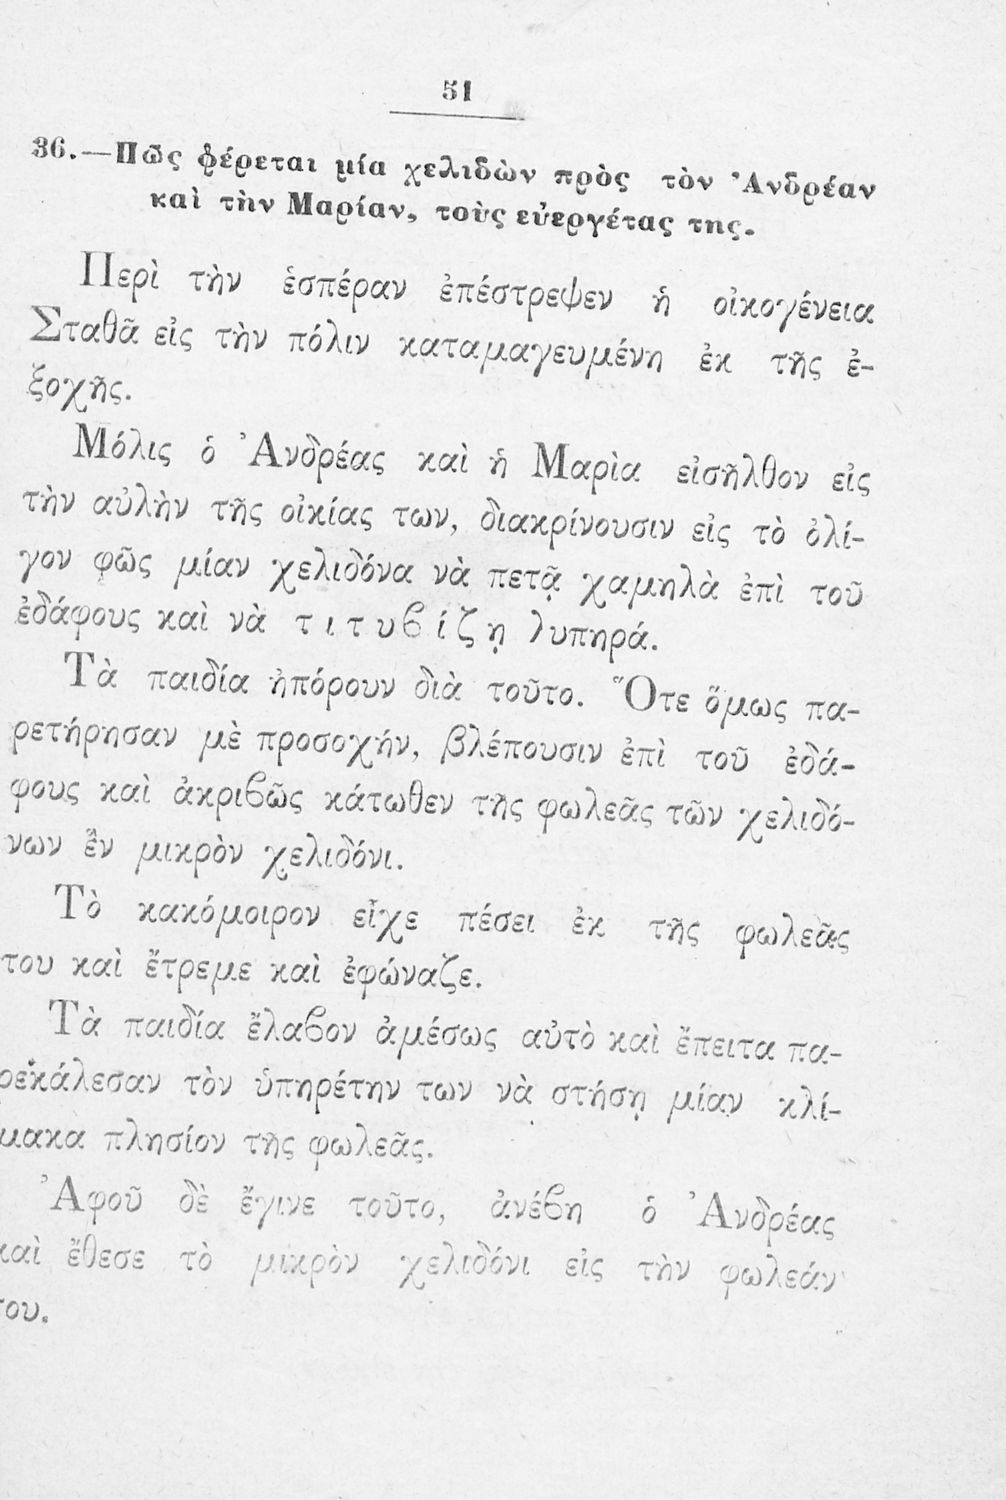 51
36.—Πῶς φέρεται μία χελιδὼν πρὸς τὸν Ἀνδρέαν
καὶ τὴν Μαρίαν, τοὺς εὐεργέτας της.
Περὶ τὴν ἑσπέραν ἐπέστρεψεν ἡ οἰκογένεια
Σταθᾶ εἰς τὴν πόλιν καταμαγευμένη ἐκ τῆς ἐ-
ξοχῆς.
Μόλις ὁ Ἀνδρέας καὶ ἡ Μαρὶα εἰσῆλθον εἰς
τὴν αὐλὴν τῆς οἰκίας των, διακρίνουσιν εἰς τὸ ὀλί-
γον φῶς μίαν χελιδόνα νὰ πετᾷ χαμηλὰ ἐπὶ τοῦ
ἐδάφους καὶ νὰ τιτυϐίζῃ λυπηρά.
Τὰ παιδία ἠπόρουν διὰ τοῦτο. Ὅτε ὅμως πα-
ρετήρησαν μὲ προσοχήν, βλέπουσιν ἐπὶ τοῦ ἐδά-
φους καὶ ἀκριϐῶς κάτωθεν τῆς φωλεᾶς τῶν χελιδό-
νων ἓν μικρὸν χελιδόνι.
Τὸ κακόμοιρον εἶχε πέσει ἐκ τῆς φωλεᾶς
του καὶ ἔτρεμε καὶ ἐφώναζε.
Τὰ παιδία ἔλαϐον ἀμέσως αὐτὸ καὶ ἔπειτα πα-
ρεκάλεσαν τὸν ὑπηρέτην των νὰ στήσῃ μίαν κλί-
μακα πλησίον τῆς φωλεᾶς.
Ἀφοῦ δὲ ἔγινε τοῦτο, ἀνέϐη ὁ Ἀνδρέας
καὶ ἔθεσε τὸ μικρὸν χελιδόνι εἰς τὴν φωλεάν
του.